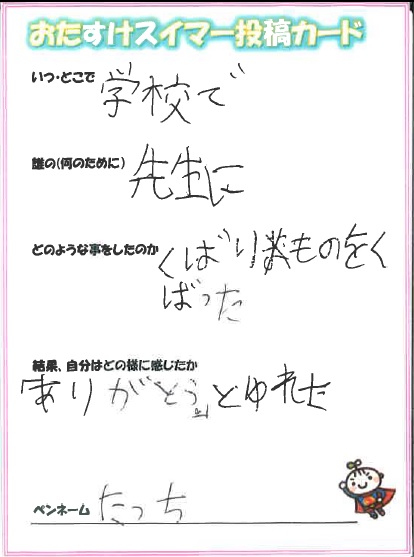 おたすけスイマー投稿カード
いつ・どこで
学校で
誰の(何のために)
先生に
どのような事をしたのか
くばりものをく
ばった
結果、自分はどの様に感じたか
「ありがとう」とゆれた
ペンネーム
たっち